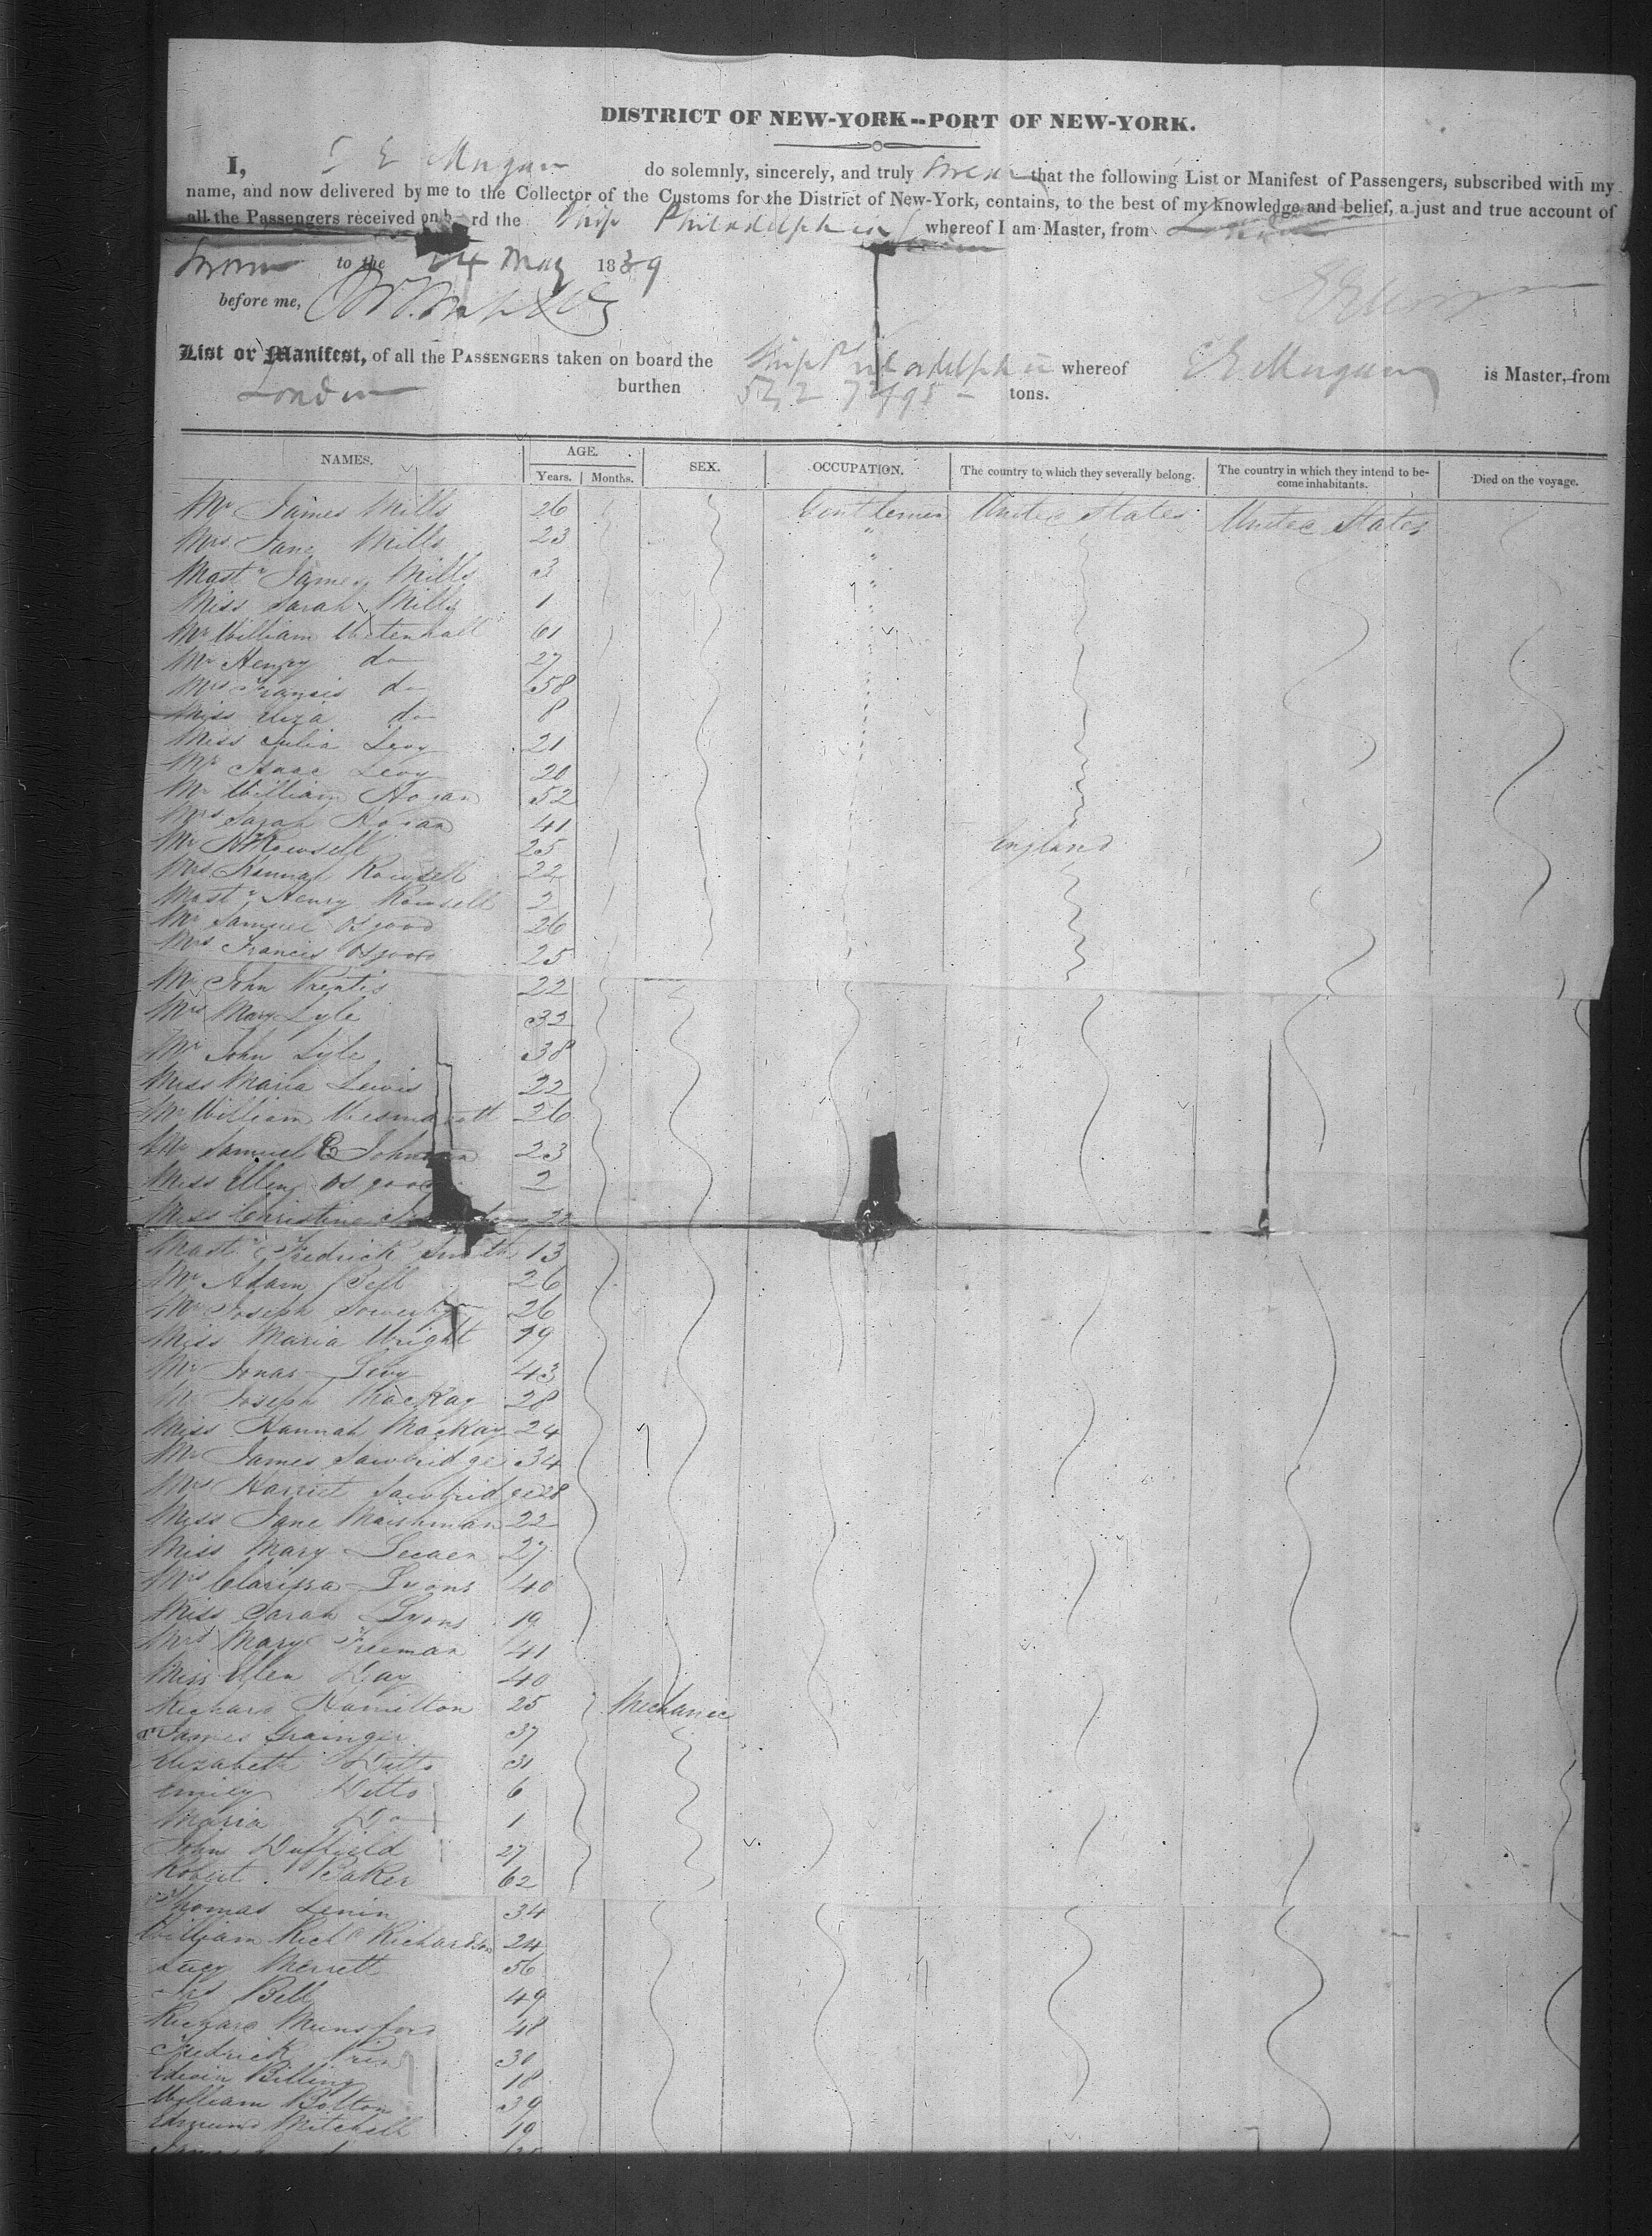 DISTRICT OF NEW-YORK--PORT OF NEW-YORK.
I, E Morgan do solemnly, sincerely, and truly swear that the following List or Manifest of Passengers, subscribed with my
name, and now delivered by me to the Collector of the Customs for the District of New-York, contains, to the best of my knowledge and belief, a just and true account of
all the Passengers received on b rd the Ship Philadelphia whereof I am Master, from London
Sworn to the 24 May 1839
before me,
List or Manifest, of all the PASSENGERS taken on board the Ship Philadelphia whereof E E Morgan is Master, from
London burthen tons.
NAMES. AGE. SEX. OCCUPATION. The country to which they severally belong. The country in which they intend to become inhabitants. Died on the voyage.
Years. Months.
Mr James Mills 26 Gentlemen United States United States
Mrs Jane Mills 23 "
Mastr James Mills 3 "
Miss Sarah Mills 1 "
Mr William Wetenhall 61
Mr Henry do 27
Mrs Francis do 58
Miss Eliza do 8
Miss Julia Levy 21
Mr Isaac Levy 20
Mr William Hogan 52
Mrs Sarah Hogan 41
Mr Rowsell 25 England
Mrs Hannah Rowsell 22
Mastr Henry Rowsell 2
Mr Samuel Osgood 26
Mrs Francis Osgood 25
Mr John Prentis 22
Mrs Mary Lyle 32
Mr John Lyle 38
Miss Maria Lewis 22
Mr William 26
Mr Samuel E Johnson 23
Miss Ellen Osgood 2
Miss Christine 22
Mastr Fredrick Smith 13
Mr Adam 26
Mr Joseph Sowerby 26
Miss Maria Wright 19
Mr Jonas Levy 43
Mr Joseph MacKay 28
Miss Hannah MacKay 24
Mr James Sawbridge 34
Mrs Harriet Sawbridge 28
Miss Jane Marshman 22
Miss Mary 27
Mrs Clarissa Lyons 40
Miss Sarah Lyons 19
Mrs Mary Freeman 41
Miss Ellen Day 40
Richard Hamilton 25 Mechanic
James Grainger 37
Elizabeth Ditto 31
Emily Ditto 6
Maria Do 1
John Duffield 27
Robert Baker 62
Thomas Lenin 34
William Richd Richardson 24
Lucy Merrett 56
Jas Bell 49
Richard Munsford 48
Fredrick 30
Edwin Billing 18
William Bolton 39
Edmund Mitchell 19